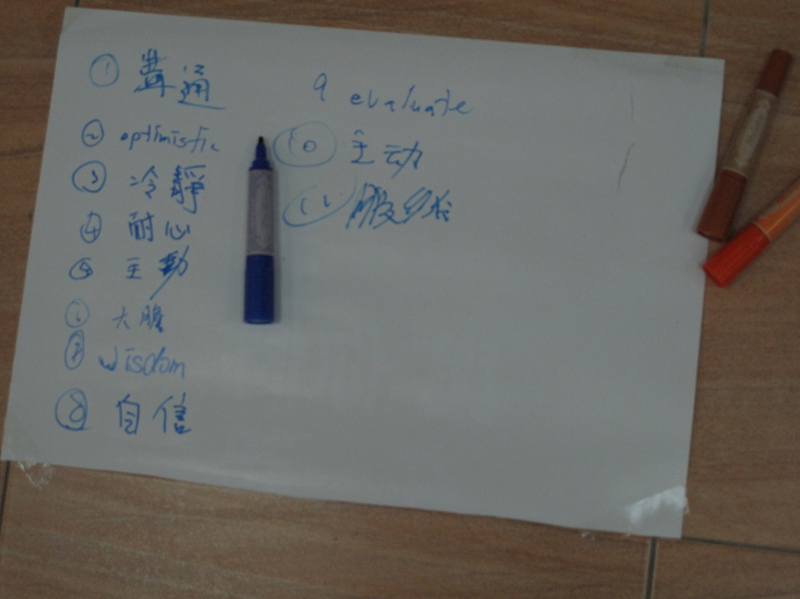 ① 溝通
② optimistic
③ 冷靜
④ 耐心
⑤ 主動
⑥ 大膽
⑦ wisdom
⑧ 自信
9 evaluate
⑩ 主动
⑪